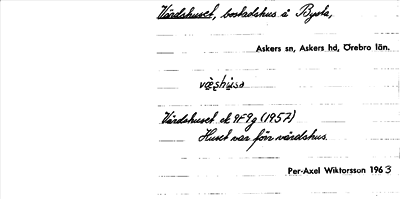 Värdshuset, bostadshus å Bysta,
Askers sn, Askers hd, Örebro län.
Värdshuset ek 9F9g (1957)
Huset var förr värdshus.
Per-Axel Wiktorsson 1963